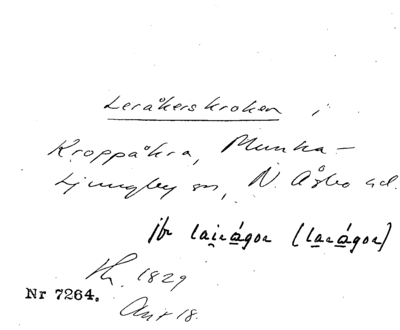 Leråkerskroken i
Kroppåkra, Munka-
Ljungby sn, N. Åsbo hd.
jfr lairágor (larágor)
1829
Nr 7264.
18.